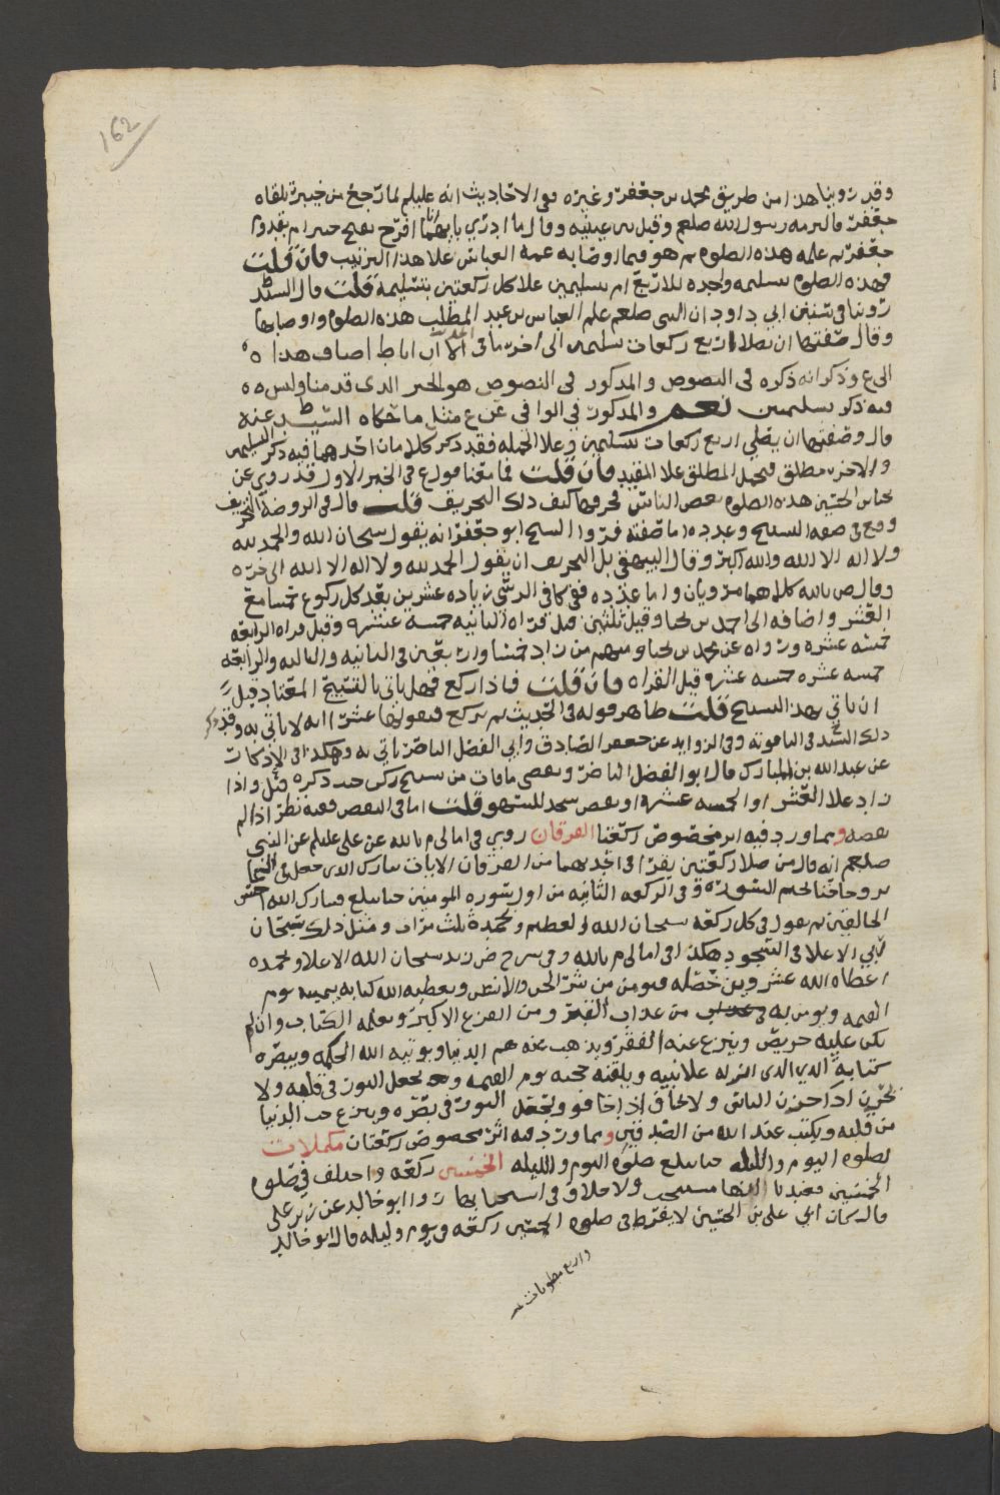 162
وقد روينا هذا من طريق محمد بن جعفر وغيره وفي الاحاديث انه عليلم لما رجع من خيبر تلقاه
جعفر فالتزمه رسول الله صلعم وقبل بين عينيه وقال ما ادري بايهما انا افرح بفتح خيبر ام بقدوم
جعفر ثم علمه هذه الصلوه ثم هو فيما اوصا به عمه العباس علا هذا الترتيب فان قلت
فهذه الصلوه بتسليمه واحده للاربع ام بتسليمين علا كل ركعتين بتسليمة قلت قال السيد
روينا في سنن ابي داود ان النبي صلعم علم العباس بن عبد المطلب هذه الصلوه واوصا بها
وقال صفتها ان تصلا اربع ركعات بتسليمين الى اخر ما في
الى ع وذكر انه ذكره في النصوص والمذكور في النصوص هو الخبر الذي قدمنا وليس
فيه ذكر تسليمين نعم والمذكور في الوافي عن ع مثل ما حكاه السيد عنه
قال وصفتها ان يصلي اربع ركعات بتسليمين وعلا الجمله فقد ذكر كلامان احدهما فيه ذكر التسليمين
والاخر مطلق فيحمل المطلق علا المقيد فان قلت فما معنا قول ع في الخبر الاول قد روي عن
هذه الصلوه بعض الناس فحرفها كيف ذلك التحريف قلت قال في الروضة التحريف
وقع في صفه التسبيح وعدده اما صفته فروا الشيخ ابو جعفر انه يقول سبحان الله والحمد لله
ولا اله الا الله والله اكبر وقال البيهقي بل التحريف ان يقول الحمد لله ولا اله الا الله الى اخره
وقال ص بالله كلاهما مرويان واما عدده ففي كافي الرسي زياده عشرين بعد كل ركوع خمسا مع
العشر واضافه الى احمد بن يحيا وقيل ثلثين قبل قراه الثانيه خمسه عشر وقبل قراه الرابعه
خمسه عشره ورواه عن محمد بن يحيا ومنهم من زاد خمسا واربعين في الثانيه والثالثه والرابعه
خمسه عشره خمسه عشره قبل القراه فان قلت فاذا ركع فهل ياتي بالتسبيح المعتاد قبل
ان ياتي بهذا التسبيح قلت ظاهر قوله في الحديث ثم يركع فيقولها عشرا انه لا ياتي به وقد ذكر
ذلك السيد في الياقوته وفي الزوايد عن جعفر الصادق وابي الفضل الناصر ياتي به وهكذا في الاذكار
عن عبد الله بن المبارك قال ابو الفضل الناصر ويقضي ما فات من تسبيح ركن حيث ذكره قيل واذا
زاد علا العشر او الخمسه عشر او نقص سجد للسهو قلت اما في النقص ففيه نظر اذا لم
يقصه ومما ورد فيه اثر مخصوص ركعتا الفرقان روي في امالي م بالله عن علي عليلم عن النبي
صلعم انه قال من صلا ركعتين يقرا في احدهما من الفرقان الايات تبارك الذي جعل في السما
بروجا حتا يختم السوره وفي الركعه الثانيه من اول سوره المومنين حتا يبلغ فتبارك الله احسن
الخالقين ثم يقول في كل ركعه سبحان الله العظيم وبحمده ثلث مرات ومثل ذلك سبحان
ربي الاعلا في السجود هكذا في امالي م بالله وفي شرح ض زيد سبحان الله الاعلا وبحمده
اعطاه الله عشرين خصله فيومن من شر الجن والانس ويعطيه الله كتابه بيمينه يوم
القيمه ويومن من عذاب القبر ومن الفزع الاكبر ويعلمه الكتاب وان لم
يكن عليه حريص وينزع عنه الفقر ويذهب عنه هم الدنيا ويوتيه الله الحكمه ويبصره
كتابه الذي انزله علا نبيه ويلقنه حجته يوم القيمه ويجعل النور في قلبه ولا
يحزن اذا حزن الناس ولا يخاف اذا خافو ويجعل النور في بصره وينزع حب الدنيا
من قلبه ويكتب عند الله من الصديقين ومما ورد فيه اثر مخصوص ركعتان مكملات
لصلوه اليوم والليله حتا تبلغ صلوه اليوم والليله الخمسين ركعه واختلف في صلوه
الخمسين فعندنا انها تستحب ولا خلاف في استحبابها روا ابو خالد عن زيد بن علي
قال كان ابي علي بن الحسين لا يفرط في صلوه الخمسين ركعه في يوم وليله قال ابو خالد